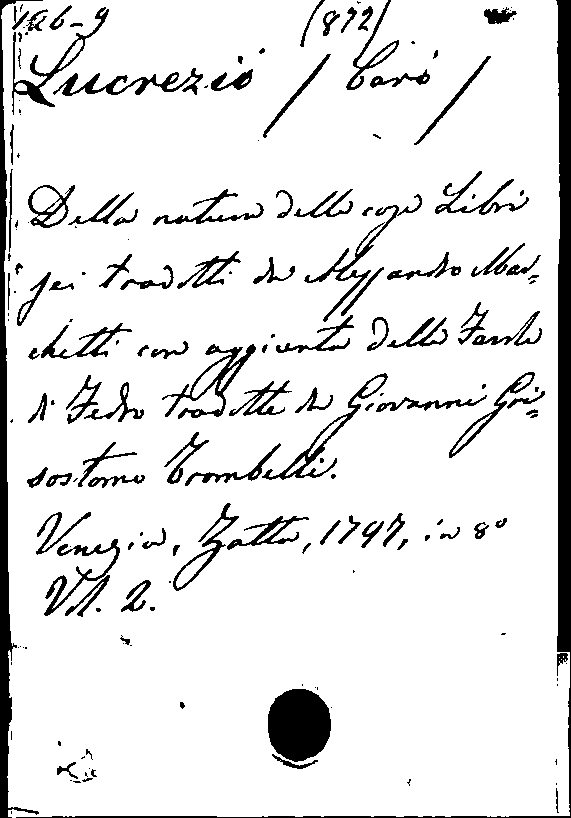 1ab-9 (872)
Lucrezio / Caro /
Della natura delle cose Libri
sei tradotti da Alessandro Mar=
chetti con aggiunta delle Favole
di Fedro tradotte da Giovanni Gri=
sostomo Trombelli.
Venezia, Zatta, 1797, in 8º
Vol. 2.